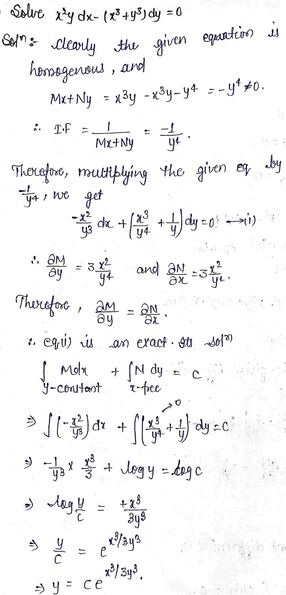 Solve x²y dx - (x³+y³) dy = 0
Solⁿ:- Clearly the given equation is
homogenous, and
Mx+Ny = x³y - x³y - y⁴ = -y⁴ ≠ 0.
∴ I.F = 1/(Mx+Ny) = -1/y⁴.
Therefore, multiplying the given eq by
-1/y⁴, we get
-x²/y³ dx + (x³/y⁴ + 1/y) dy = 0 → (i)
∴ ∂M/∂y = 3x²/y⁴ and ∂N/∂x = 3x²/y⁴.
Therefore, ∂M/∂y = ∂N/∂x.
∴ eq(i) is an exact. Its solⁿ
∫ Mdx + ∫ N dy = c
y-constant x-free
⇒ ∫(-x²/y³) dx + ∫(x³/y⁴ + 1/y) dy = c
0
⇒ -1/y³ × x³/3 + log y = log c
⇒ log y/c = +x³/3y³
⇒ y/c = e^(x³/3y³)
⇒ y = c e^(x³/3y³).